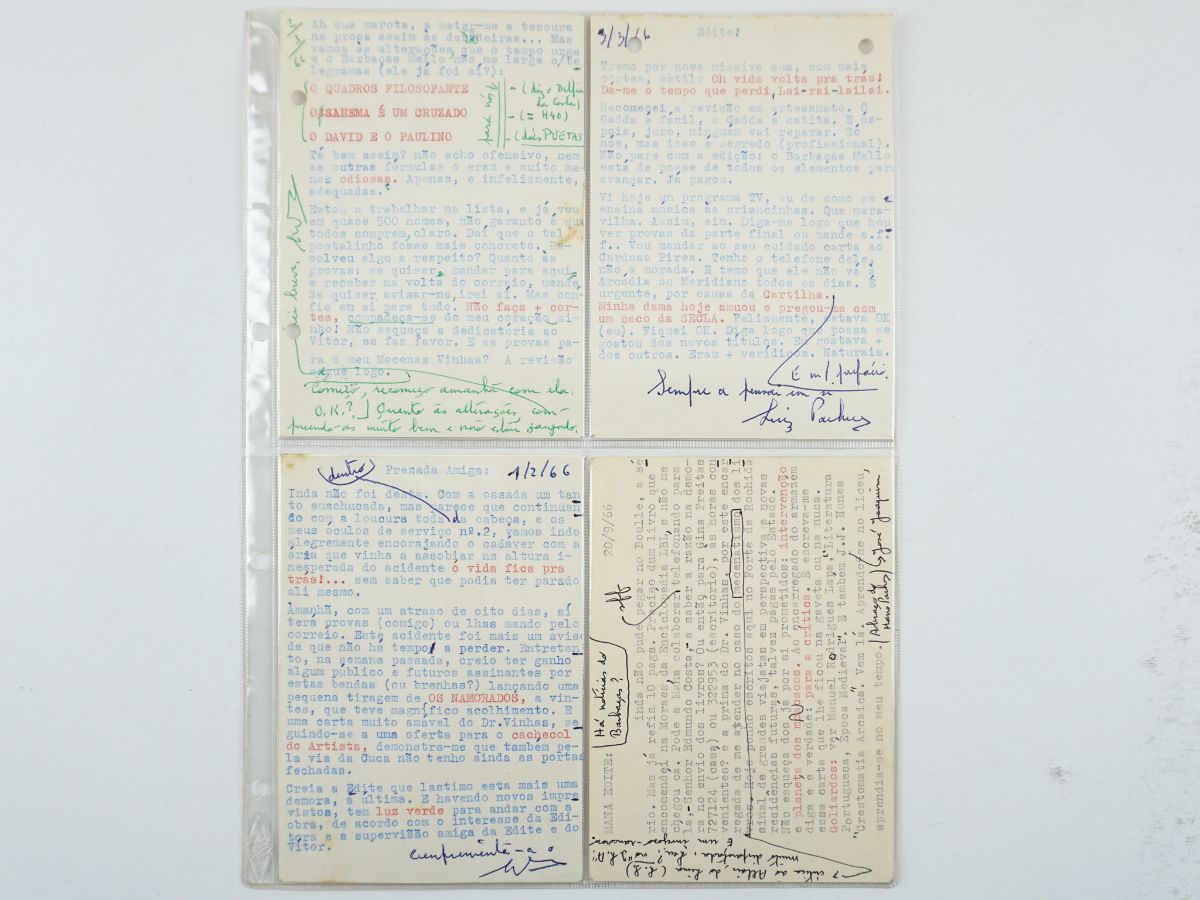 Ah sua marota, a meter-me a tesoura
na prosa assim às
vamos às alterações, que o tempo urge
e o Barbaças Mello não me larga c/te
legramas (ele já foi aí?):
O QUADROS FILOSOFANTE
O SABEMA É UM CRUZADO
O DAVID E O PAULINO
para nós
- (= H40)
- (dois PUETAS
Tá bem assim? não acho ofensivo, nem
as outras fórmulas o eram e muito me-
nos odiosas. Apenas, e infelizmente,
adequadas.
Estou a trabalhar na lista, e já vou
em quase 500 nomes, não garanto é que
todos comprem, claro. Daí que o tal
postalinho fosse mais concreto. Re-
solveu algo a respeito? Quanto às
provas: se quiser, mandar para aqui
e receber na volta do correio, mande
Se quiser avisar-me, irei aí. Mas con-
fio em si para tudo. Não faça + cor-
tes, compadeça-se do meu coração zi-
nho! Não esqueça a dedicatória ao
Vítor, se faz favor. E as provas pa-
ra o meu Mecenas Vinhas? A revisão
segue logo.
Começo, recomeço amanhã com ela.
O.K.?] Quanto às alterações, com-
preendo-as muito bem e não estou zangado.
3/3/66
Edite:
Tremo por nova missiva sua, com mais
cortes, estilo Oh vida volta pra trás!
Da-me o tempo que perdi, Lai-rai-lailai.
Recomecei a revisão em artesanato. O
Gadda é fácil, o Gadda é catita. E de-
pois, juro, ninguem vai reparar. Só
nós, mas isso é segredo (profissional).
Não pare com a edição: o Barbaças Mello
está de posse de todos os elementos para
avançar. Já pagou.
Vi hoje um programa TV, ou de como se
ensina musica às criancinhas. Que mara-
vilha. Assim, sim. Diga-me logo que hou
ver provas da parte final ou mande s.f
f.. Vou mandar ao seu cuidado carta ao
Cardoso Pires. Tenho o telefone dele,
não a morada. E temo que ele não vá à
Arcádia ou Meridiano todos os dias. É
urgente, por causa da Cartilha.
Minha dama hoje amuou e pregou-me com
um caco da SECLA. Felizmente, estava OK
(eu). Fiquei OK. Diga logo que possa se
gostou dos novos títulos. Eu gostava +
dos outros. Eram + verídicos. Naturais.
E m/ prefácio.
Sempre a pensar em si
Luiz Pacheco
(dentro)
Prezada Amiga:
1/2/66
Inda não foi desta. Com a ossada um tan
to amachucada, mas parece que continuan
do com a loucura toda da cabeça, e os
meus óculos de serviço nº.2, vamos indo
alegremente encorajando o cadaver com a
ária que vinha a assobiar na altura i-
nesperada do acidente ó vida fica pra
trás!... sem saber que podia ter parado
ali mesmo.
Amanhã, com um atraso de oito dias, aí
terá provas (comigo) ou lhas mando pelo
correio. Este acidente foi mais um aviso
de que não há tempo a perder. Entretan
to, na semana passada, creio ter ganho
algum público e futuros assinantes por
estas bandas (ou brenhas?) lançando uma
pequena tiragem de OS NAMORADOS, a vin-
tes, que teve magnífico acolhimento. E
uma carta muito amavel do Dr.Vinhas, se
guindo-se a uma oferta para o cachecol
do Artista, demonstra-me que tambem pe-
la via da Cuca não tenho ainda as portas
fechadas.
Creia a Edite que lastimo esta mais uma
demora, a última. E havendo novos impre
vistos, tem luz verde para andar com a
obra, de acordo com o interesse da Edi-
tora e a supervisão amiga da Edite e do
Vítor.
cumprimenta-a o
MANA EDITE:
(Há notícias do
Barbaças?
20/9/66
inda não pude pegar no Boulle, a sé
rio. Mas já refiz 10 pags. Preciso dum livro que
encomendei na Moraes, da Enciclopedia LBL, e não me
chegou cá. Pode a Maia colaborar, telefonando para
lá, Senhor Edmundo Costa, a saber a razão na demo-
ra no envio dos livros? Ou então para Gina Freitas
727124 (casa) ou 322953 (escritorio), as horas con
venientes? é a prima do Dr. Vinhas, por este encar
regada de me atender no caso do mecenatismo dos li
vros. Hoje ponho escritos aqui no Forte da Rochida
sinal de grandes viajatas em perspectiva, novas
residências futures, talvez pagas pelo Estado.
Não esqueça dos livros por si prometidos: Intervenção
e planeta dos macacos. Ao encarregado do armazem
diga e é verdade: para a crítica. E escreva-me
essa carta que lhe ficou na gaveta ou na nuca.
Goliardos: ver Manuel Rodrigues Lapa, "Literatura
Portuguesa, Época Medieval". E tambem J.J. Nunes
"Crestomatia Arcaica". Vem lá. Aprende-se no liceu,
aprendia-se no meu tempo.